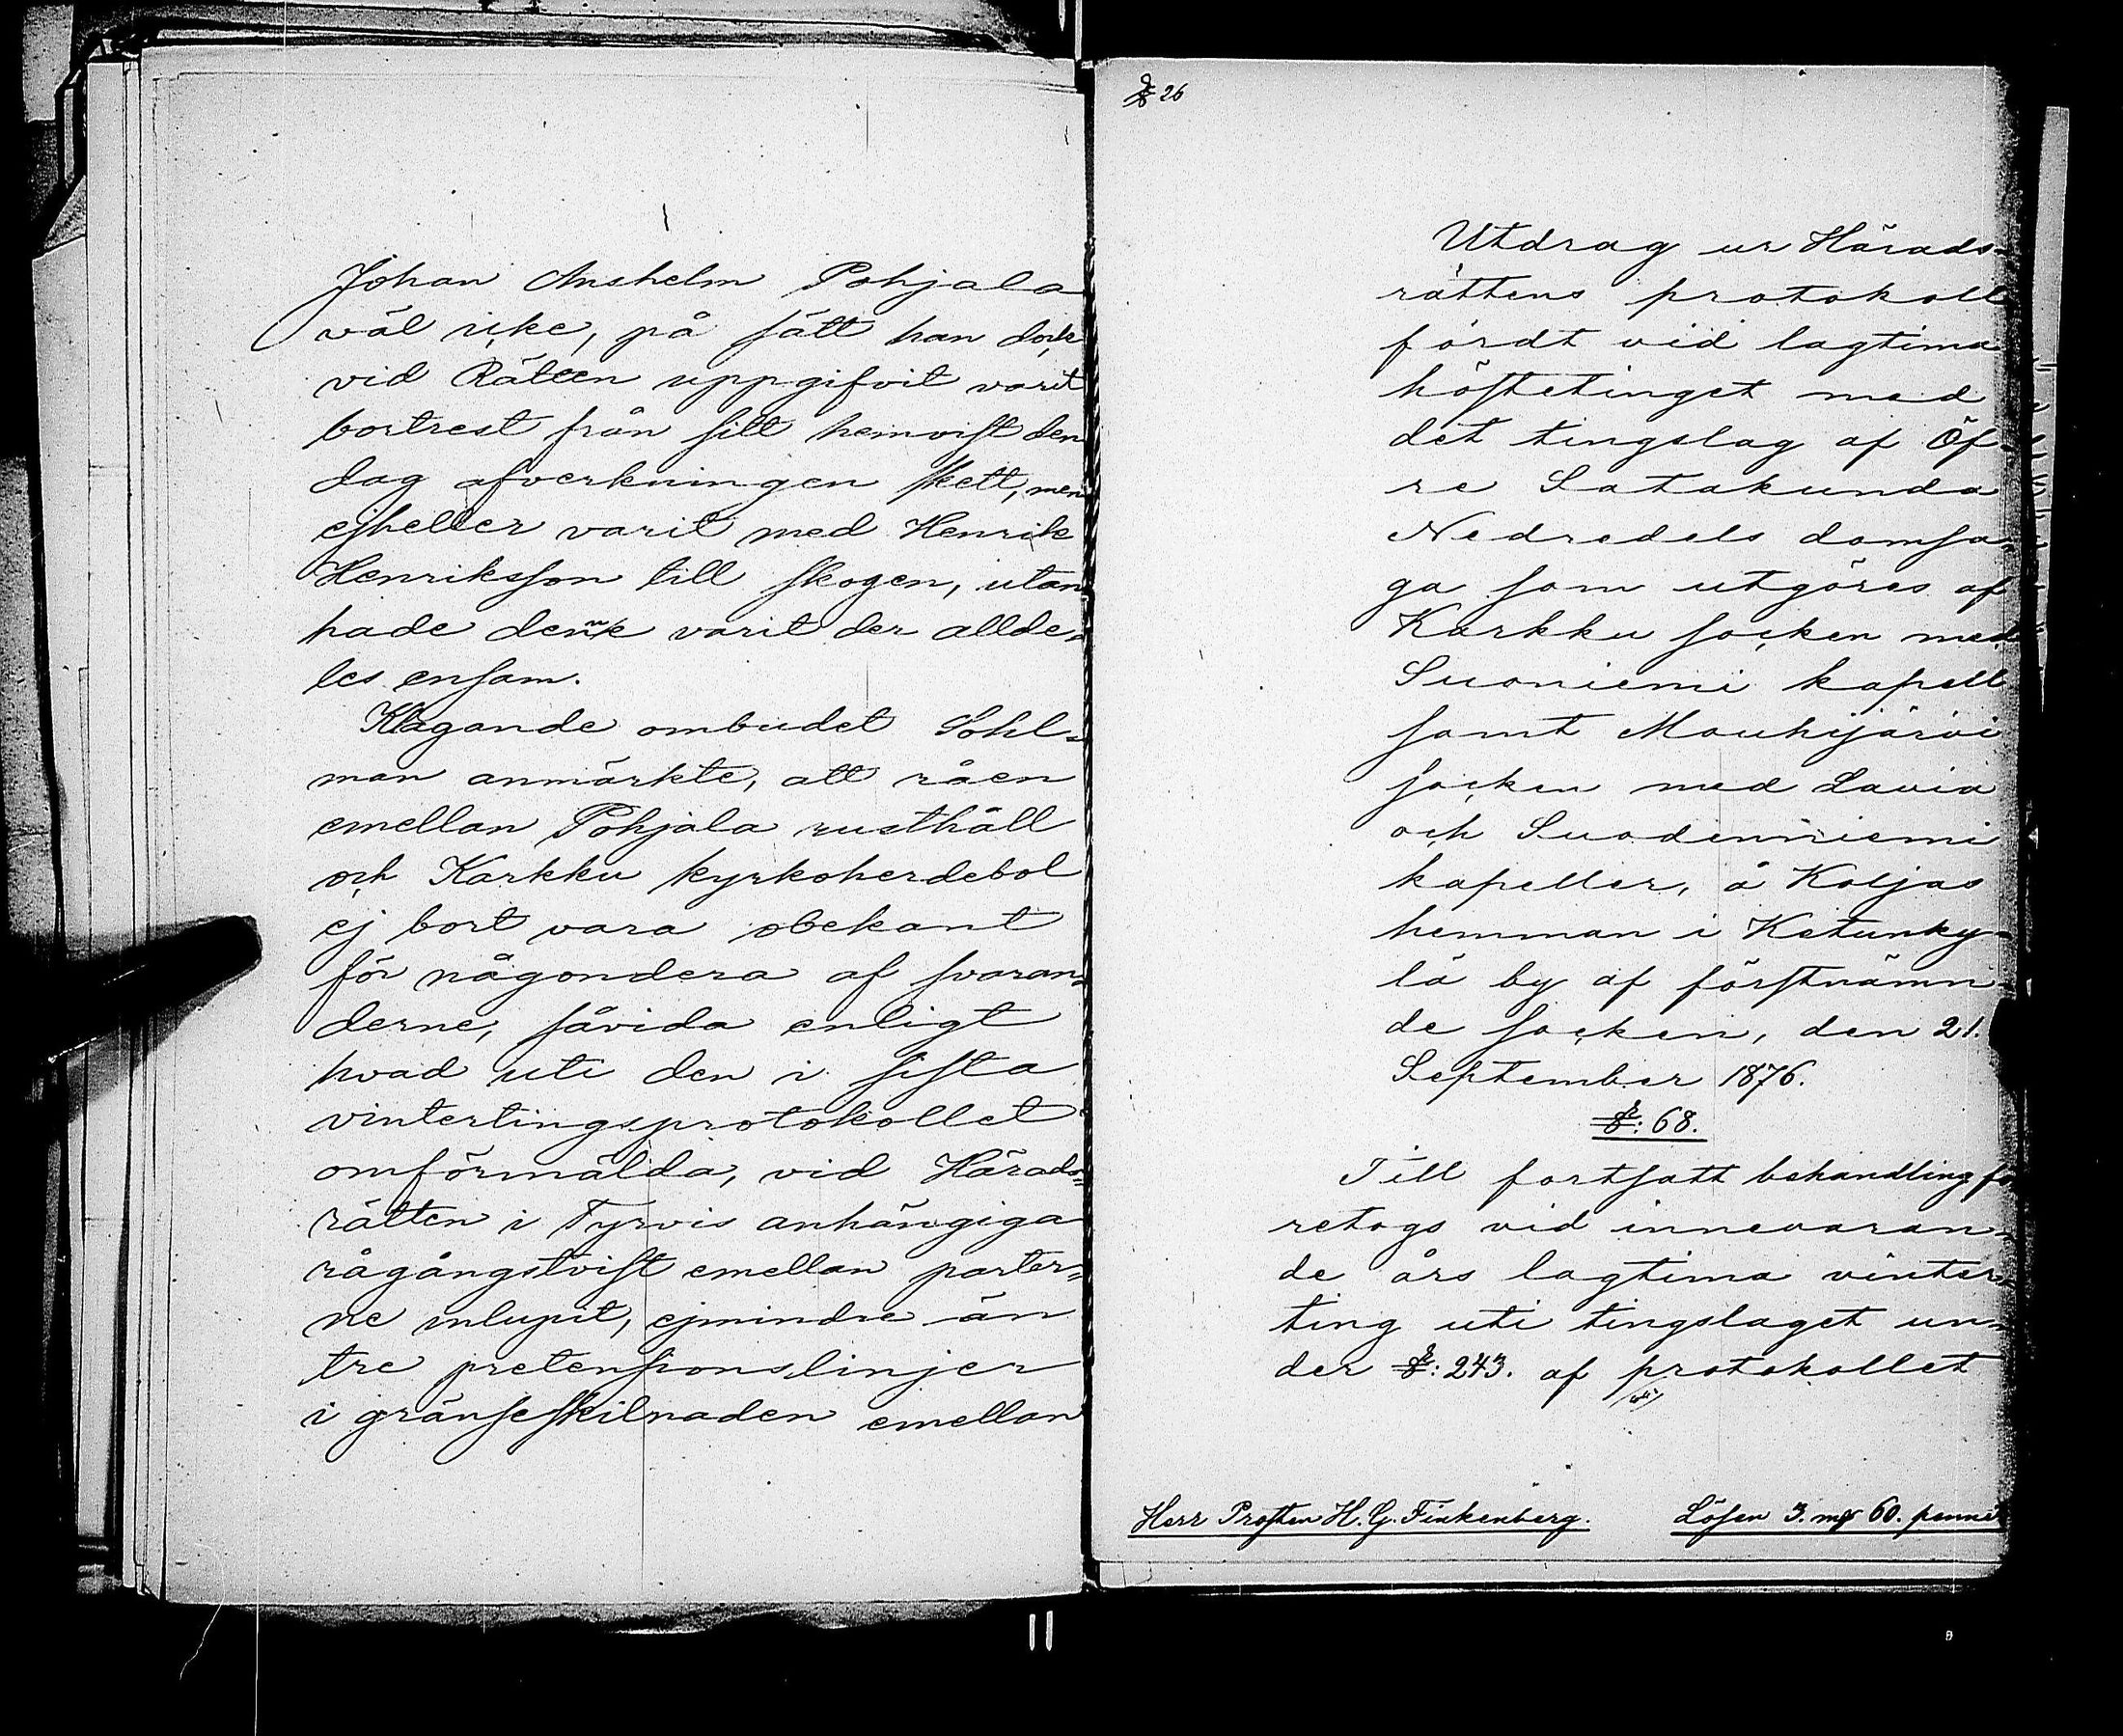 Johan Anshelm Pohjala
väl icke, på sätt han dock
vid Rätten uppgifvit varit
bortrest från sitt hemvist den
dag afverkningen skett, men
ejheller varit med Henrik
Henriksson till skogen, utan
hade denne varit der allde-
les ensam.
Klagande ombudet Sohl-
man anmärkte, att råen
emellan Pohjala rusthåll
och Karkku kyrkoherdebol
ej bort vara obekant
för någondera af svaran-
derne, såvida enligt
hvad uti den i sista
vintertingsprotokollet
omförmälda, vid Härads-
rätten i Tyrvis anhängiga
rågångstvist emellan parter-
ne inlupit, ejmindre än
tre pretensionslinjer
i gränseskilnaden emellan
§ 26
Utdrag ur Härads-
rättens protokoll
fördt vid lagtima
höstetinget med
det tingslag af Öf-
re Satakunda
Nedredels domsa-
ga som utgöres af
Karkku socken med
Suoniemi kapell
samt Mouhijärvi
socken med Lavia
och Suodenniemi
kapeller, å Koljas
hemman i Ketunky-
lä by af förstnämn-
de socken, den 21.
September 1876.
§: 68.
Till fortsatt behandling fö
retogs vid innevaran-
de års lagtima vinter-
ting uti tingslaget un-
der §: 243. af protokollet
Herr Prosten H. G. Finkenberg. Lösen 3. mk 60. penni